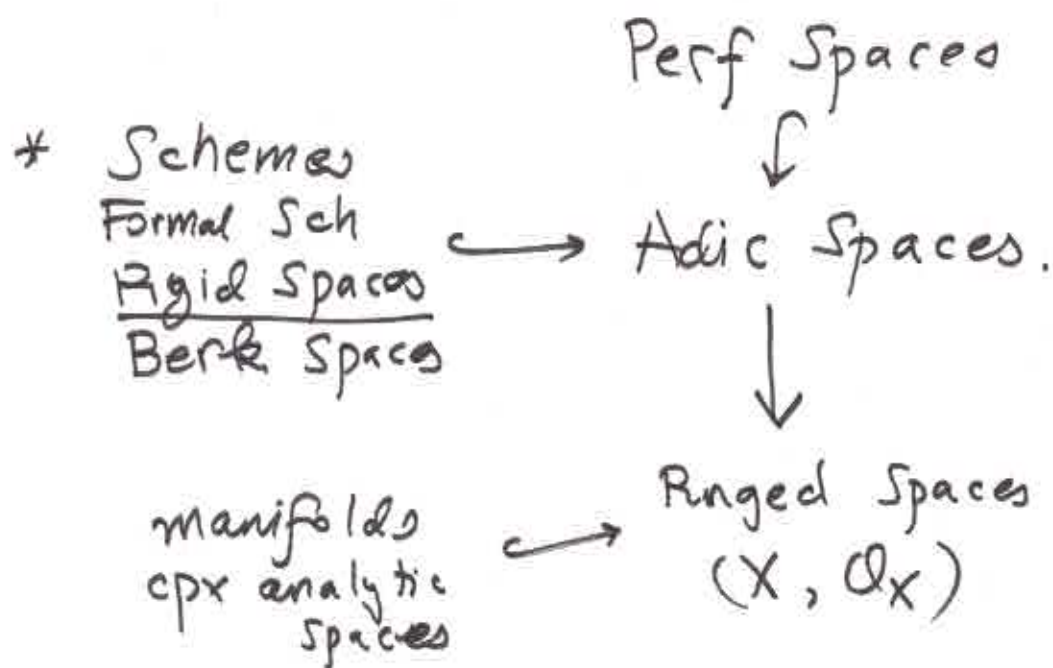 Perf Spaces
* Schemes
Formal Sch
Rigid Spaces
Berk Spaces
Adic Spaces.
manifolds
cpx analytic
spaces
Ringed Spaces
(X, O_X)